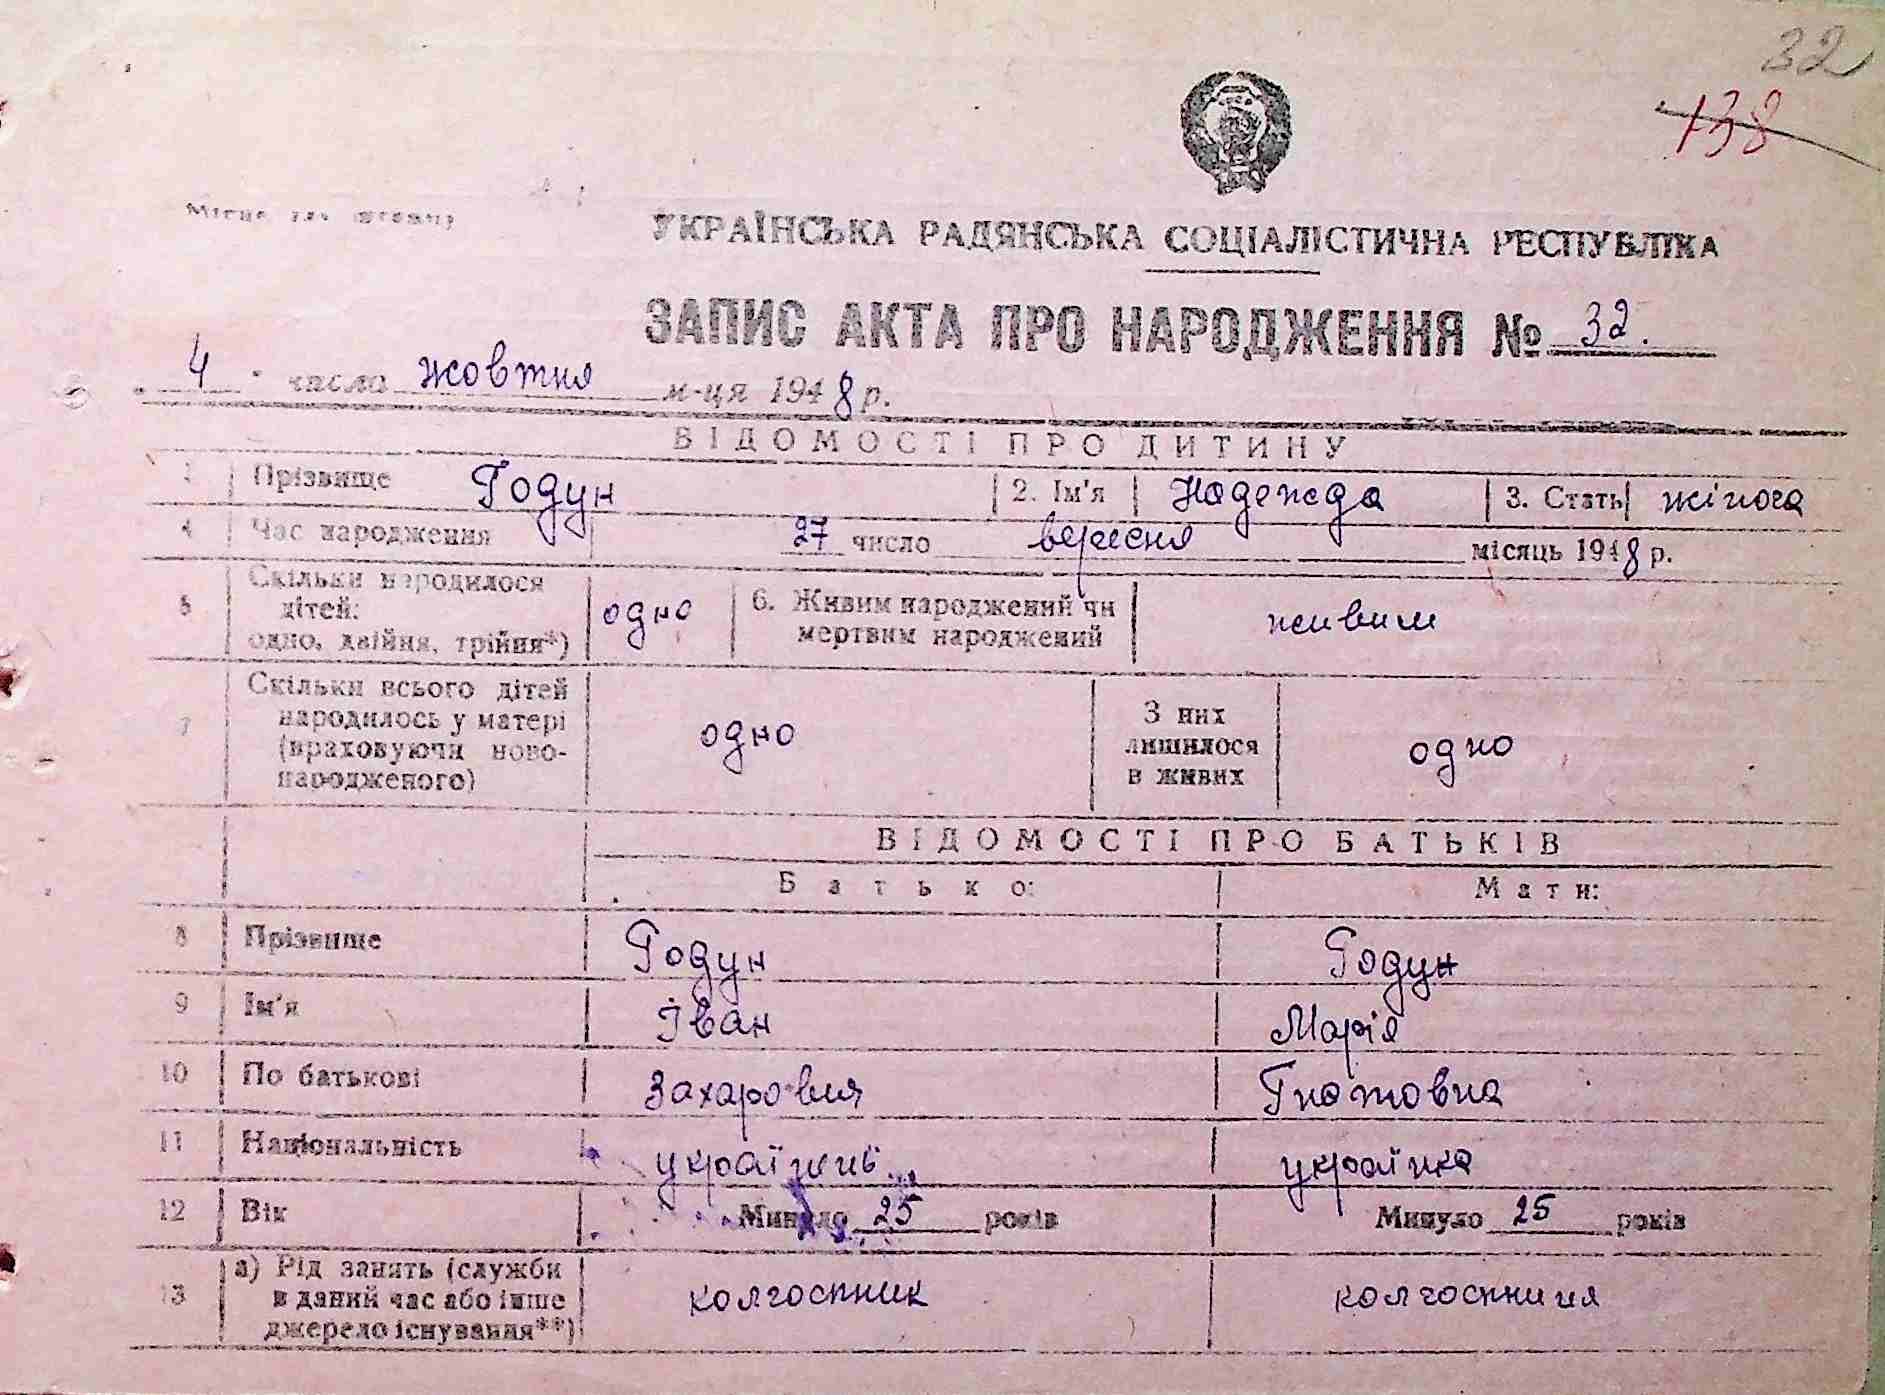 32
138
Місце для штампу
УКРАЇНСЬКА РАДЯНСЬКА СОЦІАЛІСТИЧНА РЕСПУБЛІКА
ЗАПИС АКТА ПРО НАРОДЖЕННЯ № 32.
4 числа жовтня м-ця 1948 р.
ВІДОМОСТІ ПРО ДИТИНУ
1 Прізвище Годун 2. Ім'я Надежда 3. Стать жіноча
4 Час народження 27 число вересня місяць 1948 р.
5 Скільки народилося дітей: одно, двійня, трійня*) одно 6. Живим народжений чи мертвим народжений живим
7 Скільки всього дітей народилось у матері (враховуючи новонародженого) одно З них лишилося в живих одно
ВІДОМОСТІ ПРО БАТЬКІВ
Батько: Мати:
8 Прізвище Годун Годун
9 Ім'я Іван Марія
10 По батькові Захарович Гнатовна
11 Національність українець українка
12 Вік Минуло 25 років Минуло 25 років
13 а) Рід занять (служби в даний час або інше джерело існування**) колгоспник колгоспниця